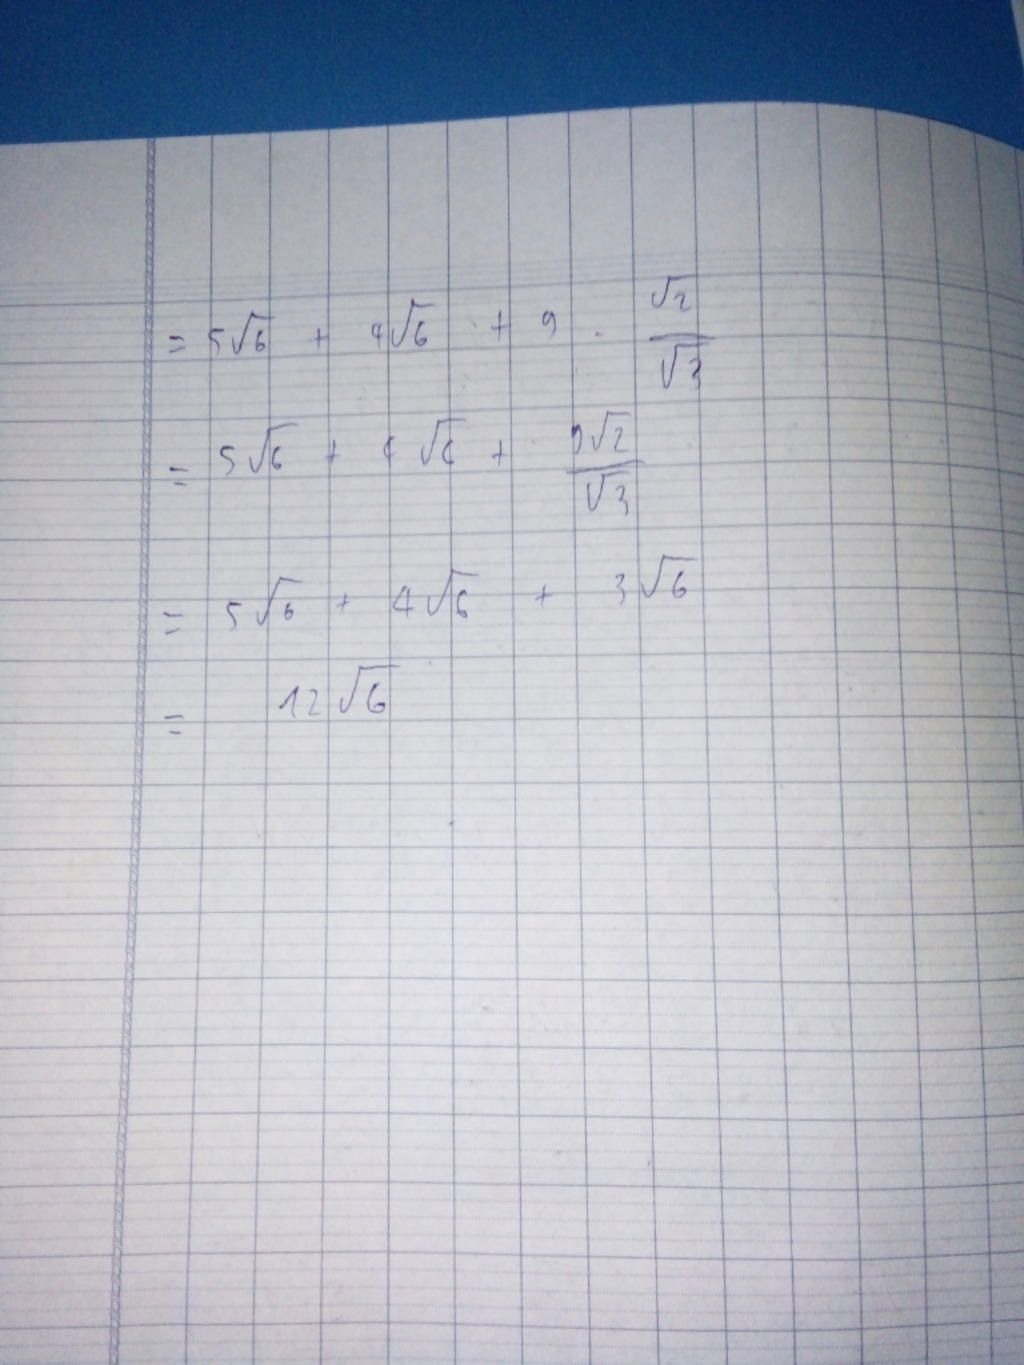 = 5√6 + 4√6 + 9 . √2/√3
= 5√6 + 4√6 + 9√2/√3
= 5√6 + 4√6 + 3√6
= 12√6